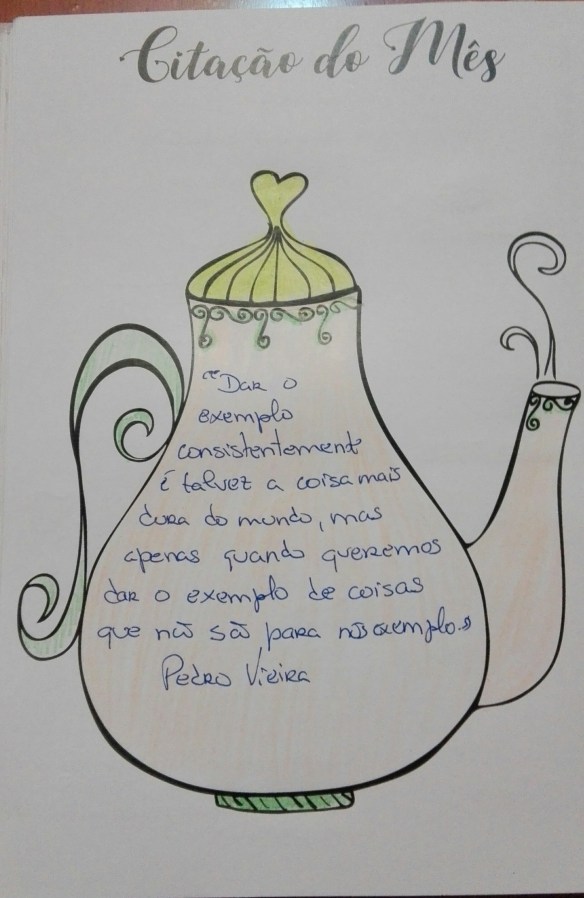 Citação do Mês
"Dar o
exemplo
consistentemente
É talvez a coisa mais
dura do mundo, mas
apenas quando queremos
dar o exemplo de coisas
que não são para nós exemplo."
Pedro Vieira